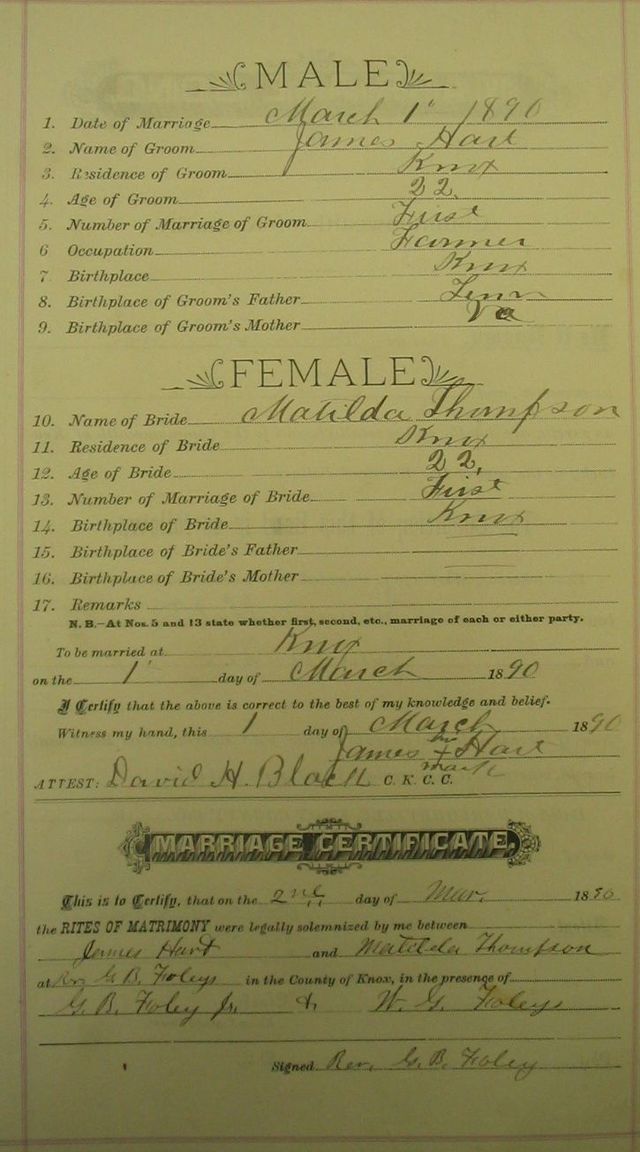 MALE
1. Date of Marriage March 1" 1890
2. Name of Groom James Hart
3. Residence of Groom Knox
4. Age of Groom 22
5. Number of Marriage of Groom First
6 Occupation Farmer
7 Birthplace Knox
8. Birthplace of Groom's Father Tenn
9. Birthplace of Groom's Mother Va
FEMALE
10. Name of Bride Matilda Thompson
11. Residence of Bride Knox
12. Age of Bride 22,
13. Number of Marriage of Bride First
14. Birthplace of Bride Knox
15. Birthplace of Bride's Father
16. Birthplace of Bride's Mother
17. Remarks
N. B.—At Nos. 5 and 13 state whether first, second, etc., marriage of each or either party.
To be married at Knox
on the 1" day of March 1890
I Certify that the above is correct to the best of my knowledge and belief.
Witness my hand, this 1 day of March 1890
James his x mark Hart
ATTEST: David H. Black C. K. C. C.
MARRIAGE CERTIFICATE.
This is to Certify, that on the 2nd day of Mar. 1890
the RITES OF MATRIMONY were legally solemnized by me between
James Hart and Matilda Thompson
at Rev G. B. Foleys in the County of Knox, in the presence of
G. B. Foley Jr. & W. G. Foleys
Signed Rev. G. B. Foley